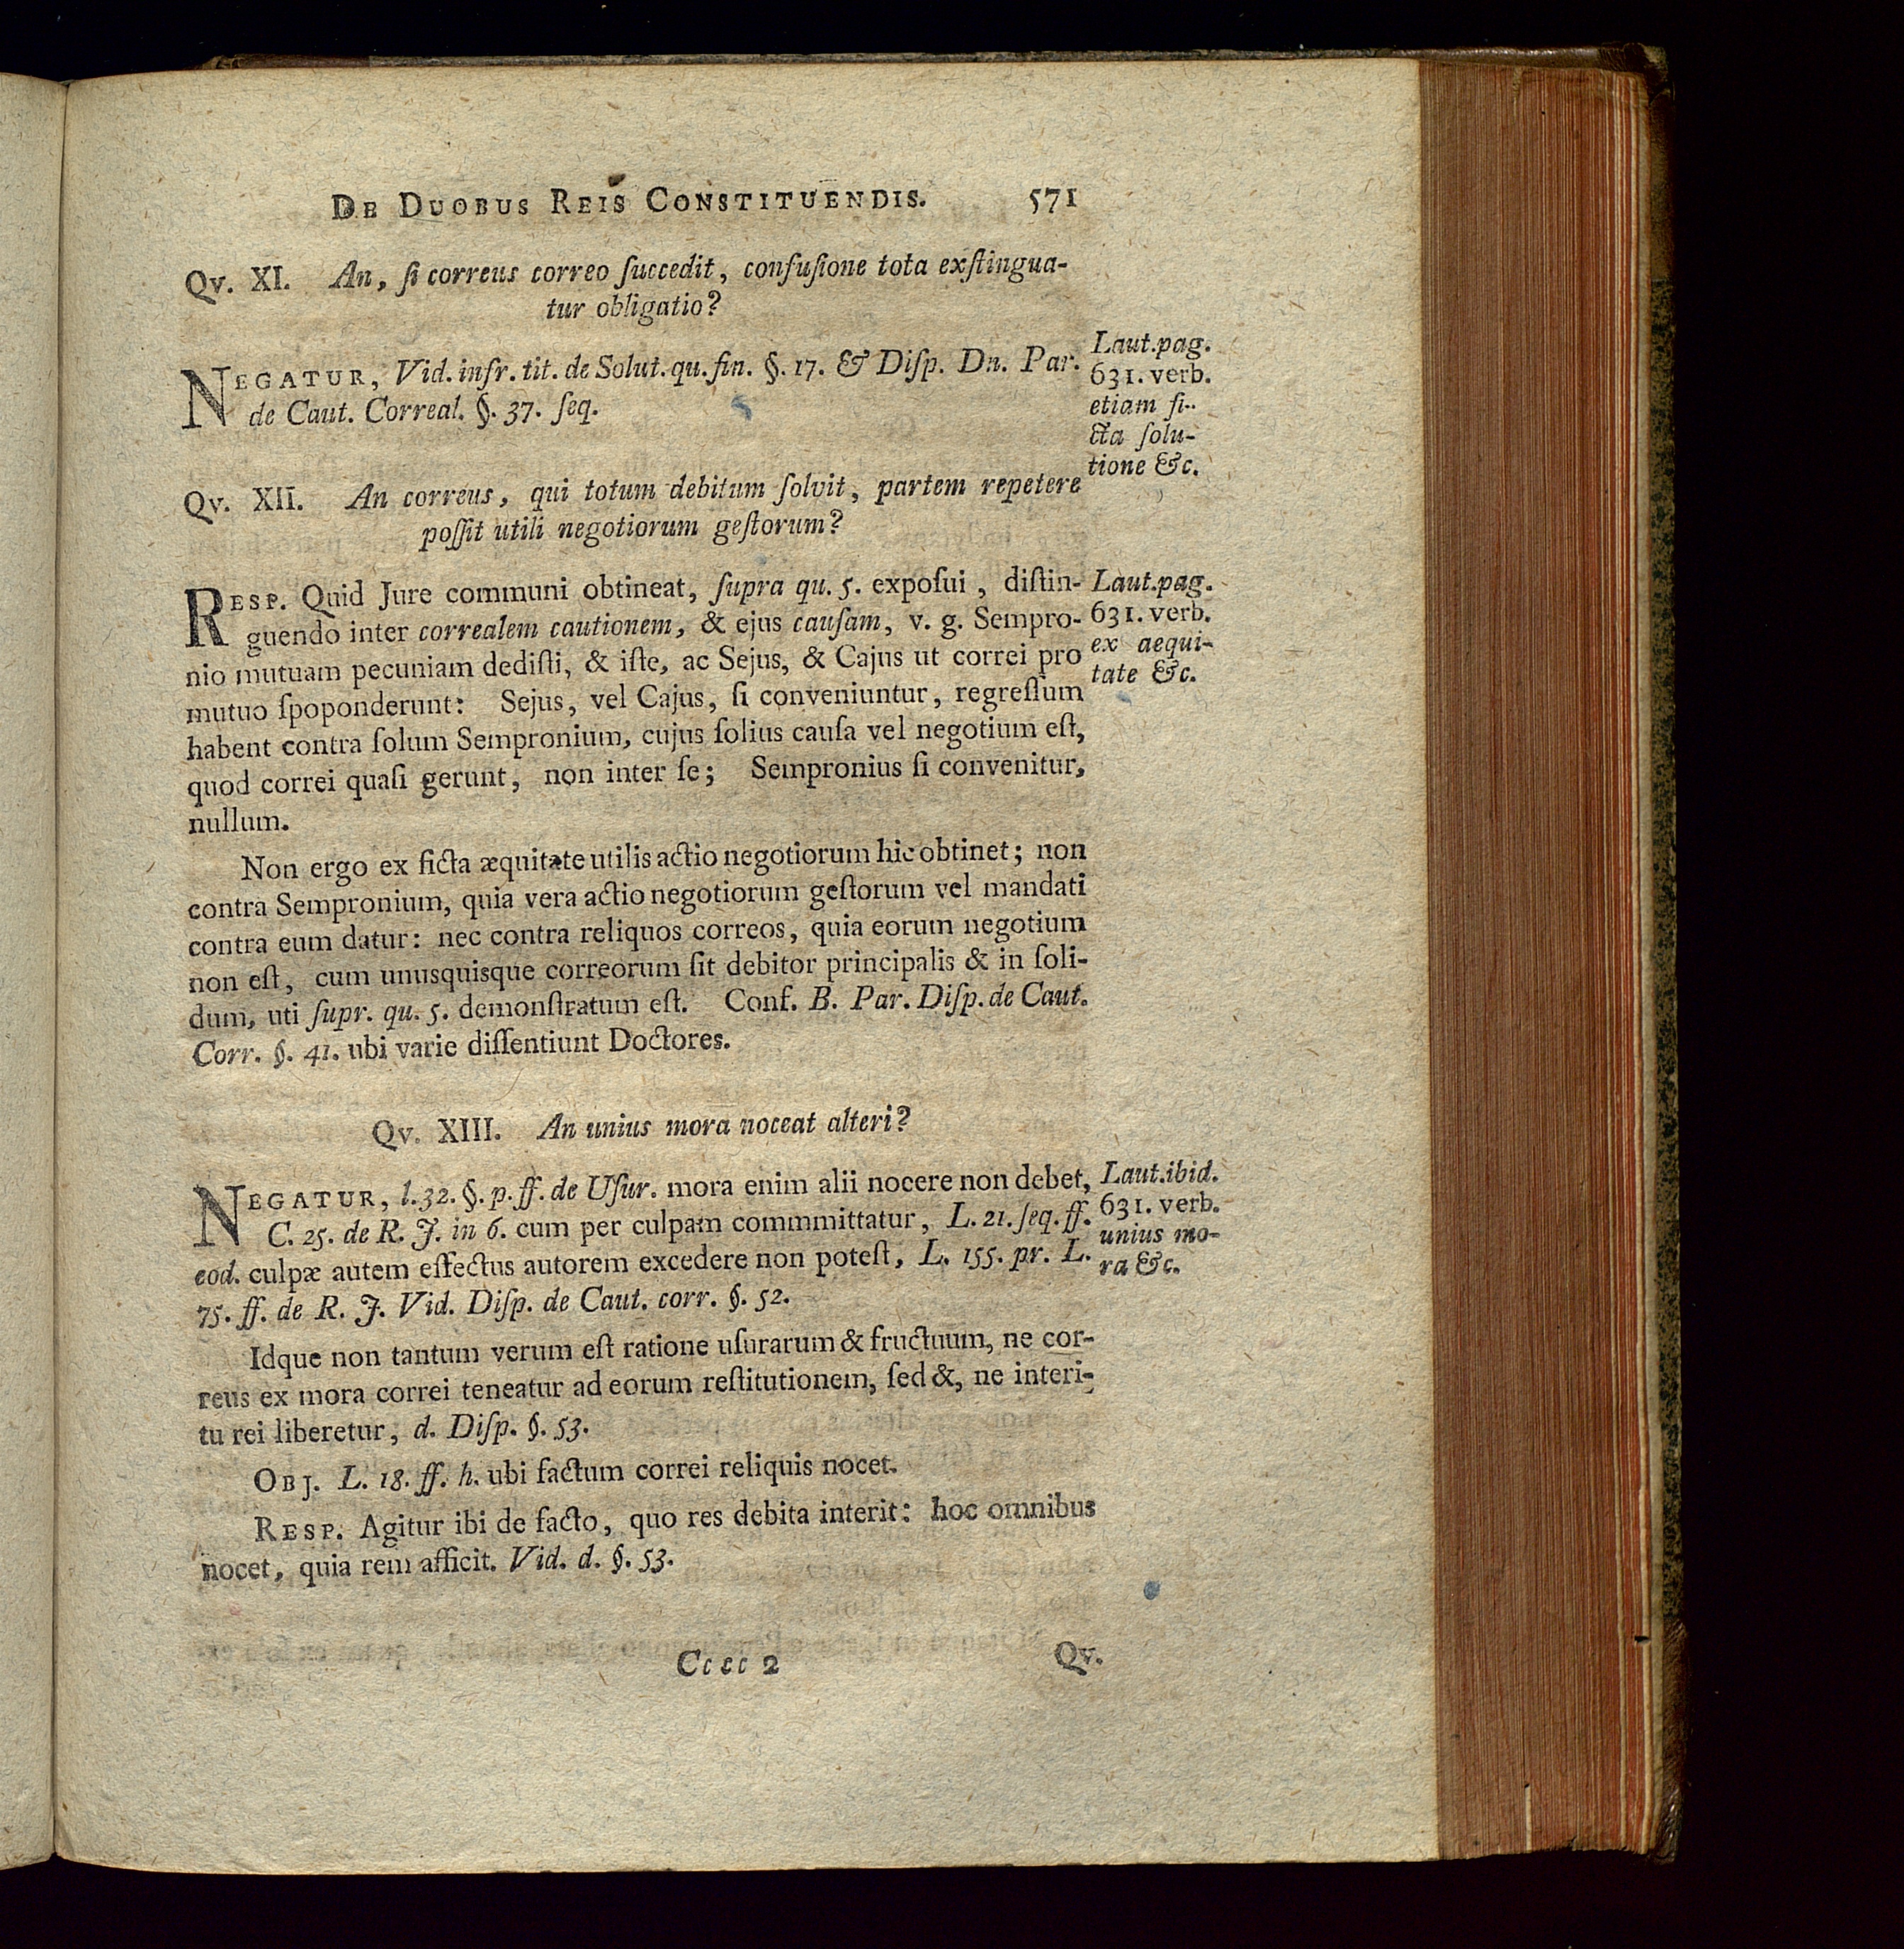 DE DUOBUS REIS CONSTITUENDIS. 571
Qv. XI. An, ſi correus correo ſuccedit, confuſione tota exſtingua-
tur obligatio?
NEGATUR, Vid. infr. tit. de Solut. qu. fin. §. 17. & Diſp. Dn. Par.
de Caut. Correal. §. 37. ſeq.
Laut. pag.
631. verb.
etiam fi-
cta ſolu-
tione &c.
Qv. XII. An correus, qui totum debitum ſolvit, partem repetere
poſſit utili negotiorum geſtorum?
RESP. Quid Jure communi obtineat, ſupra qu. 5. expoſui, diſtin-
guendo inter correalem cautionem, & ejus cauſam, v. g. Sempro-
nio mutuam pecuniam dediſti, & iſte, ac Sejus, & Cajus ut correi pro
mutuo ſpoponderunt: Sejus, vel Cajus, ſi conveniuntur, regreſſum
habent contra ſolum Sempronium, cujus ſolius cauſa vel negotium eſt,
quod correi quaſi gerunt, non inter ſe; Sempronius ſi convenitur,
nullum.
Laut. pag.
631. verb.
ex aequi-
tate &c.
Non ergo ex ficta æquitate utilis actio negotiorum hic obtinet; non
contra Sempronium, quia vera actio negotiorum geſtorum vel mandati
contra eum datur: nec contra reliquos correos, quia eorum negotium
non eſt, cum unusquisque correorum ſit debitor principalis & in ſoli-
dum, uti ſupr. qu. 5. demonſtratum eſt. Conf. B. Par. Diſp. de Caut.
Corr. §. 41. ubi varie diſſentiunt Doctores.
Qv. XIII. An unius mora noceat alteri?
NEGATUR, l. 32. §. p. ff. de Uſur. mora enim alii nocere non debet,
C. 25. de R. J. in 6. cum per culpam commmittatur, L. 21. ſeq. ff.
eod. culpæ autem effectus autorem excedere non poteſt, L. 155. pr. L.
75. ff. de R. J. Vid. Diſp. de Caut. corr. §. 52.
Laut. ibid.
631. verb.
unius mo-
ra &c.
Idque non tantum verum eſt ratione uſurarum & fructuum, ne cor-
reus ex mora correi teneatur ad eorum reſtitutionem, ſed &, ne interi-
tu rei liberetur, d. Diſp. §. 53.
OBJ. L. 18. ff. h. ubi factum correi reliquis nocet.
RESP. Agitur ibi de facto, quo res debita interit: hoc omnibus
nocet, quia rem afficit. Vid. d. §. 53.
Cccc 2 Qv.